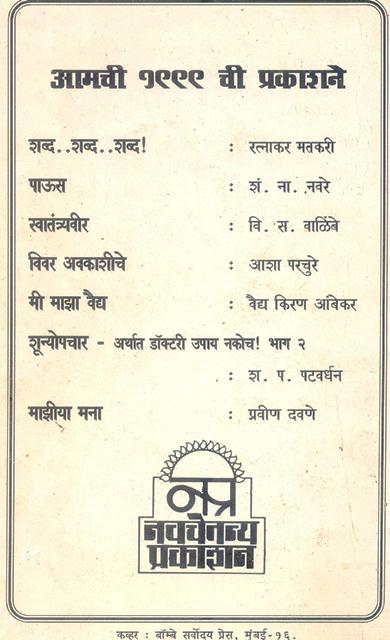 आमची १९९९ ची प्रकाशने
शब्द..शब्द..शब्द! : रत्नाकर मतकरी
पाऊस : शं. ना. नवरे
स्वातंत्र्यवीर : वि. स. वाळिंबे
विवर अवकाशीचे : आशा परचुरे
मी माझा वैद्य : वैद्य किरण आंबेकर
शून्योपचार - अर्थात डॉक्टरी उपाय नकोच! भाग २
: श. प. पटवर्धन
माझीया मना : प्रवीण दवणे
नप्र
नवचैतन्य
प्रकाशन
कव्हर : बॉम्बे सर्वोदय प्रेस, मुंबई-१६.